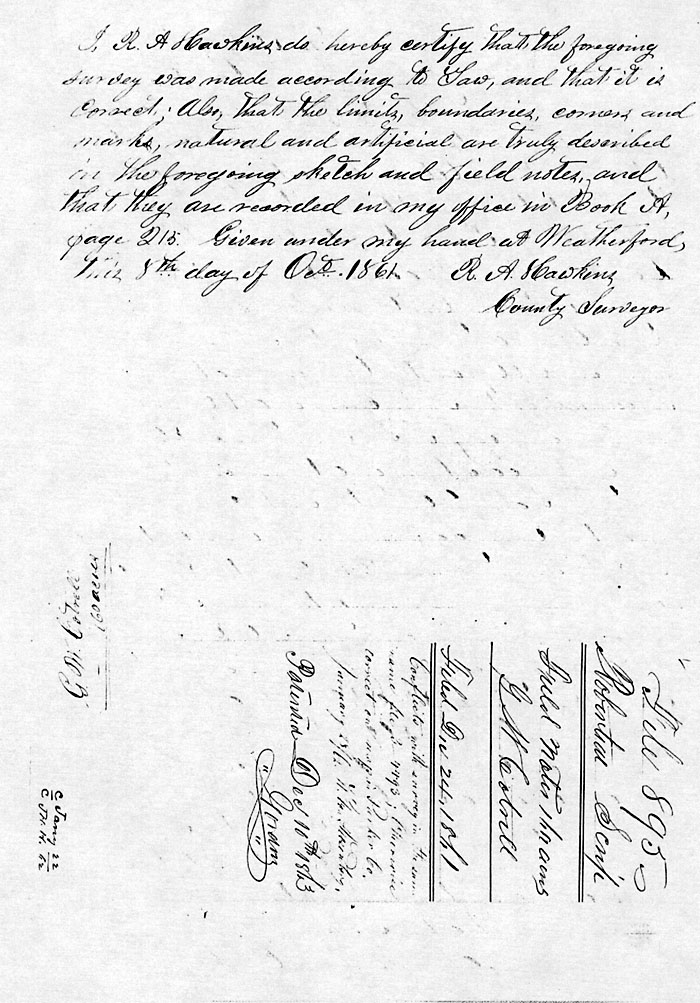 I, R. A. Hawkins, do hereby certify that the foregoing
survey was made according to Law, and that it is
correct; Also, that the limits, boundaries, corners and
marks, natural and artificial are truly described
in the foregoing sketch and field notes, and
that they are recorded in my office in Book A,
page 215. Given under my hand at Weatherford,
this 8th day of Oct. 1861. R. A. Hawkins
County Surveyor
File 895
Robertson Scrip
Field Notes
G. W.
Filed Dec 24, 1861
Conflicts with survey in the same
name file
correct on map of Parker Co.
Patented Dec 10th 1863
G. W.
160 acres
C Jany 22